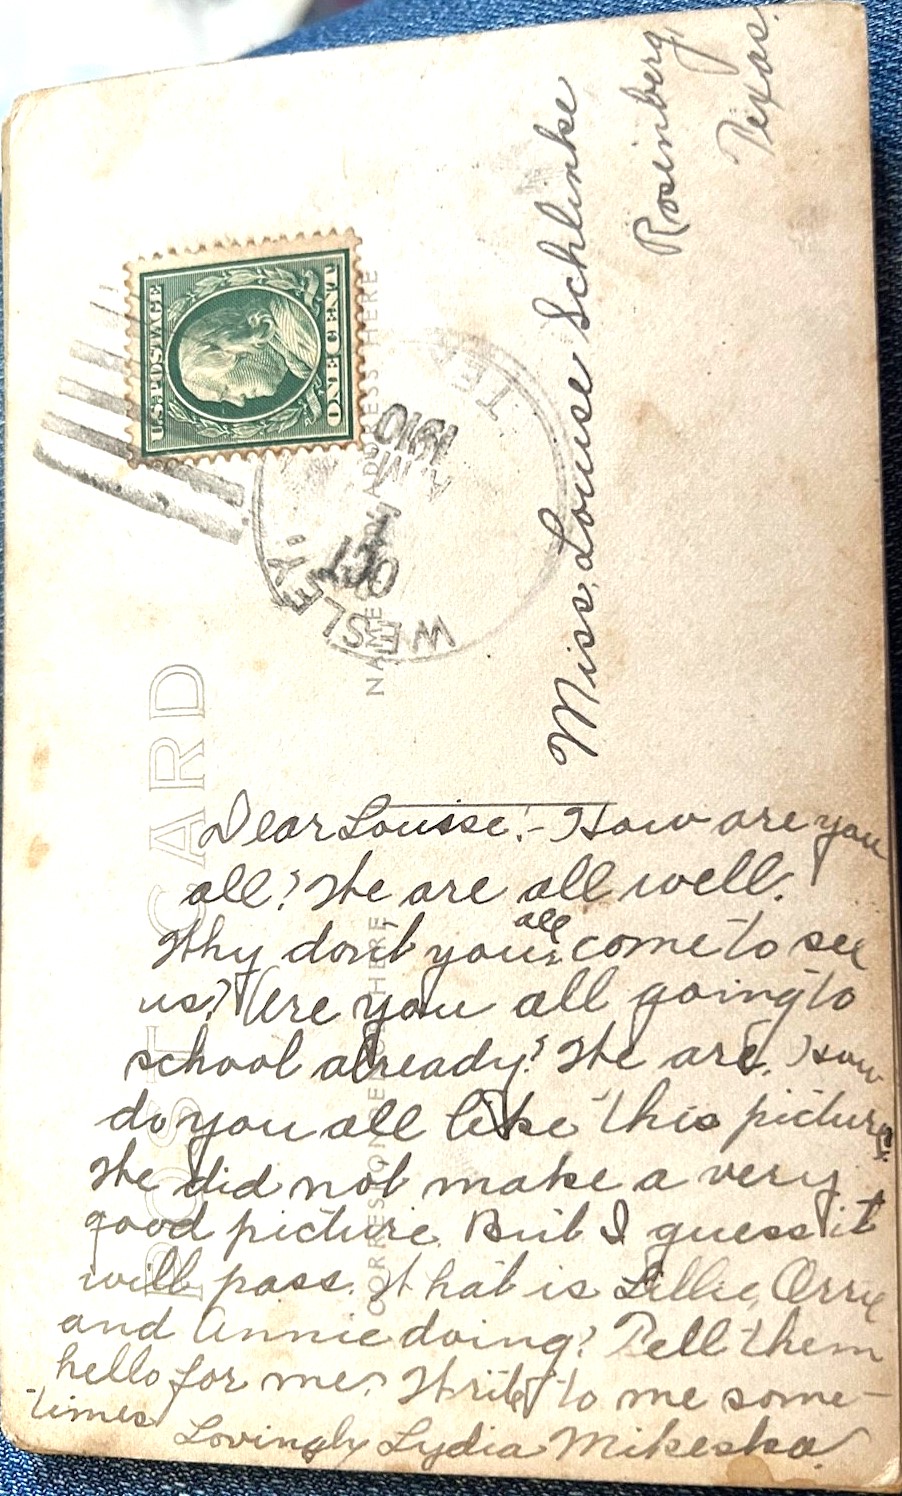 POST CARD
U.S. POSTAGE
ONE CENT
WESLEY.
TEX
OCT
7
A.M
1910
NAME AND ADDRESS HERE
CORRESPONDENCE HERE
Miss. Louise Schlinke
Rosenberg,
Texas.
Dear Louise:- How are you
all? We are all well.
Why don't you all come to see
us? Are you all going to
school already? We are. How
do you all like this picture.
We did not make a very
good picture. But I guess it
will pass. What is Lillie, Orrie
and Annie doing? Tell them
hello for me. Write to me some-
times
Lovingly Lydia Mikeska.